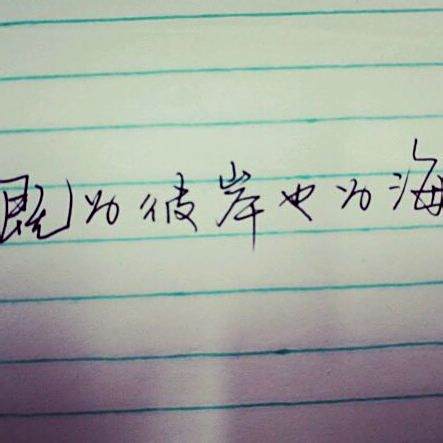 既为彼岸也为海